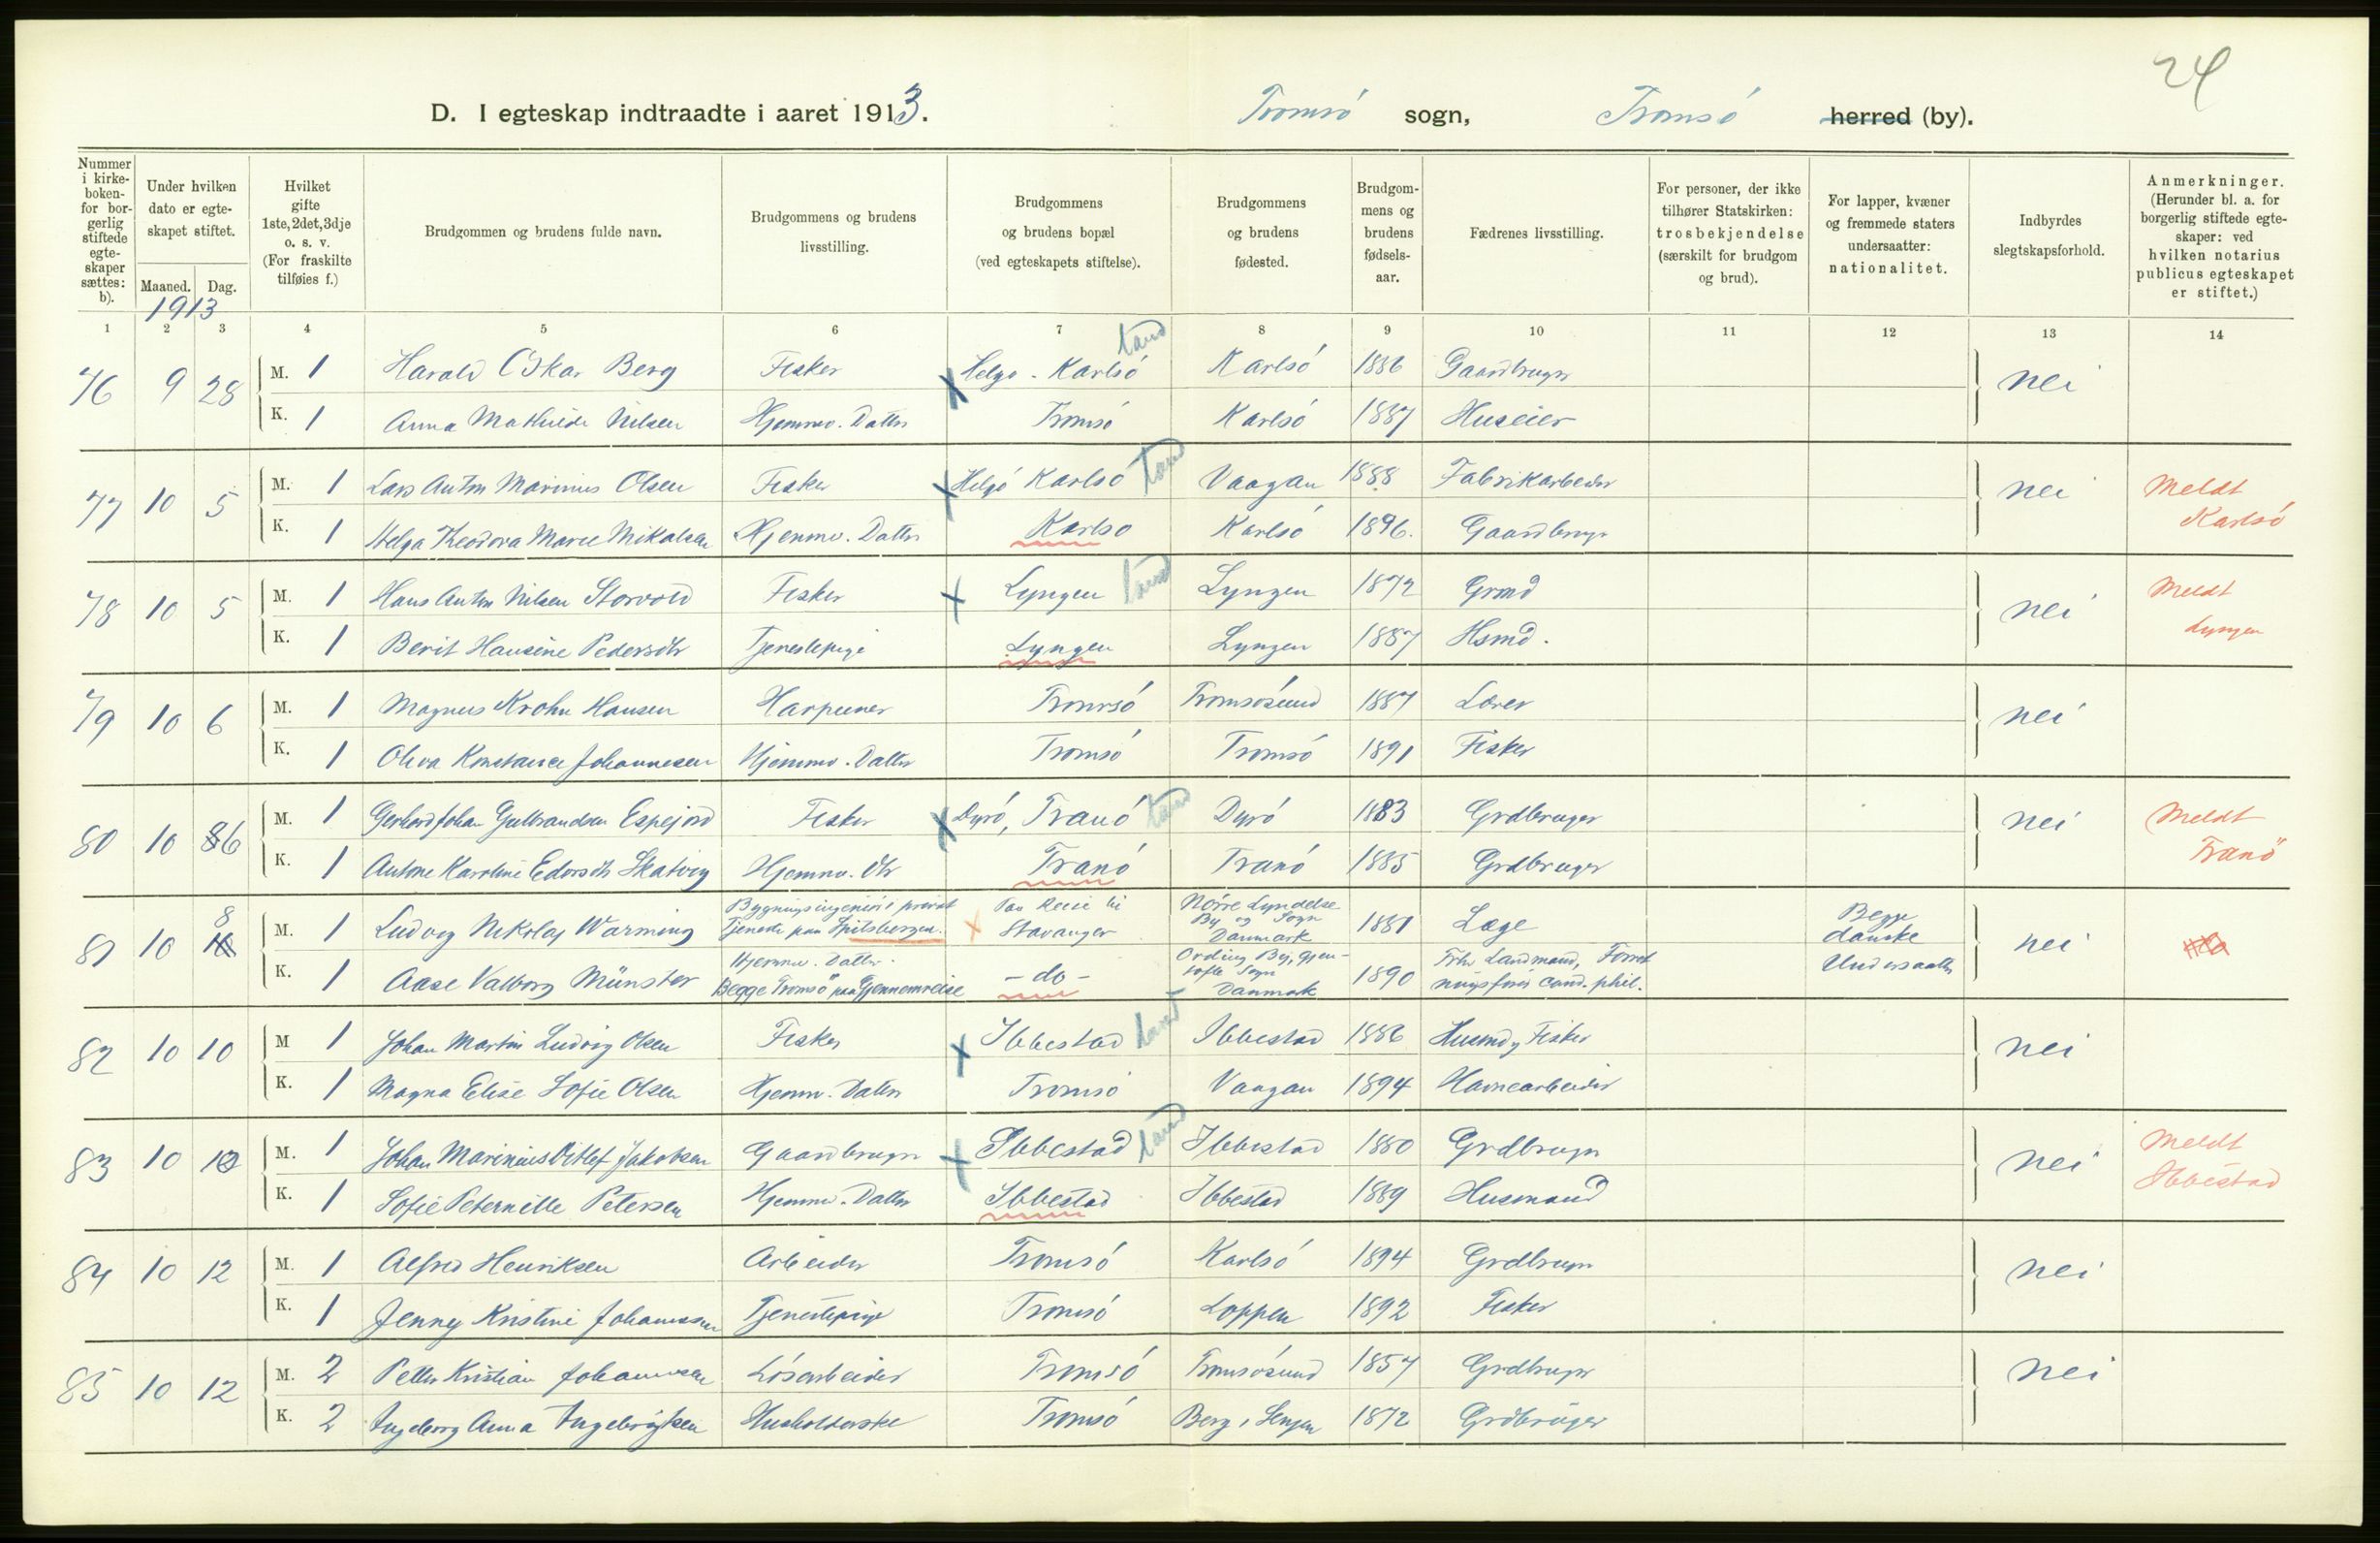 24
D. I egteskap indtraadte i aaret 1913. Tromsö sogn, Tromsö herred (by).
Nummer i kirkeboken- for borgerlig stiftede egteskaper sættes: b).
Under hvilken dato er egteskapet stiftet.
Maaned. Dag.
1913
Hvilket gifte 1ste, 2det, 3dje o. s. v. (For fraskilte tilføies f.)
Brudgommen og brudens fulde navn.
Brudgommens og brudens livsstilling.
Brudgommens og brudens bopæl (ved egteskapets stiftelse).
Brudgommens og brudens fødested.
Brudgommens og brudens fødselsaar.
Fædrenes livsstilling.
For personer, der ikke tilhører Statskirken: trosbekjendelse (særskilt for brudgom og brud).
For lapper, kvæner og fremmede staters undersaatter: nationalitet.
Indbyrdes slegtskapsforhold.
Anmerkninger. (Herunder bl. a. for borgerlig stiftede egteskaper: ved hvilken notarius publicus egteskapet er stiftet.)
1 2 3 4 5 6 7 8 9 10 11 12 13 14
76 9 28 M. 1 Harald Oskar Berg Fisker Helgö - Karlsö land Karlsö 1886 Gaardbruger nei
K. 1 Anna Mathilde Nilsen Hjemmv. Datter Tromsö Karlsö 1887 Huseier
77 10 5 M. 1 Lars Anton Marinius Olsen Fisker Helgö Karlsö land Vaagan 1888 Fabrikarbeider nei Meldt Karlsö
K. 1 Helga Theodora Marie Mikalsen Hjemmv. Datter Karlsö Karlsö 1896. Gaardbruger
78 10 5 M. 1 Hans Anton Nilsen Storvold Fisker Lyngen land Lyngen 1872 Grmd nei Meldt Lyngen
K. 1 Berit Hansine Pedersdtr Tjenestepige Lyngen Lyngen 1887 Hsmd.
79 10 6 M. 1 Magnus Krohn Hansen Harpuner Tromsö Tromsösund 1887 Lærer nei
K. 1 Oliva Konstance Johannesen Hjemmv. Datter Tromsö Tromsö 1891 Fisker
80 10 6 M. 1 Gerhard Johan Gulbrandsen Espejord Fisker Dyrö, Tranö land Dyrö 1883 Grdbruger nei Meldt Tranö
K. 1 Antone Karoline Edorsdtr Skatvig Hjemmv. Dtr Tranö Tranö 1885 Grdbruger
81 10 8 M. 1 Ludvig Nikolaj Warming Bygningsingeniör i privat Tjeneste paa Spitsbergen. Paa Reise til Stavanger Nörre Lyndelse By og Sogn Danmark 1881 Læge Begge danske Undersaatter nei
K. 1 Aase Valborg Münster Hjemmv. Datter. Begge Tromsö paa Gjennemreise - do - Ording By, Gjentofte Sogn Danmark 1890 Fhv Landmand, Forretningsförer cand. phil.
82 10 10 M 1 Johan Martin Ludvig Olsen Fisker Ibbestad land Ibbestad 1886 Husmd og Fisker nei
K. 1 Magna Elise Sofie Olsen Hjemmv. Datter Tromsö Vaagan 1894 Havnearbeider
83 10 10 M. 1 Johan Marinius Ditlef Jakobsen Gaardbruger Ibbestad land Ibbestad 1880 Grdbruger nei Meldt Ibbestad
K. 1 Sofie Peternille Petersen Hjemmv. Datter Ibbestad Ibbestad 1889 Husmand
84 10 12 M. 1 Alfred Henriksen Arbeider Tromsö Karlsö 1894 Grdbruger nei
K. 1 Jenny Kristine Johannessen Tjenestepige Tromsö Loppen 1892 Fisker
85 10 12 M. 2 Petter Kristian Johannesen Lösarbeider Tromsö Tromsösund 1857 Grdbruger nei
K. 2 Ingeborg Anna Ingebrigtsen Husholderske Tromsö Berg, Senjen 1872 Grdbruger